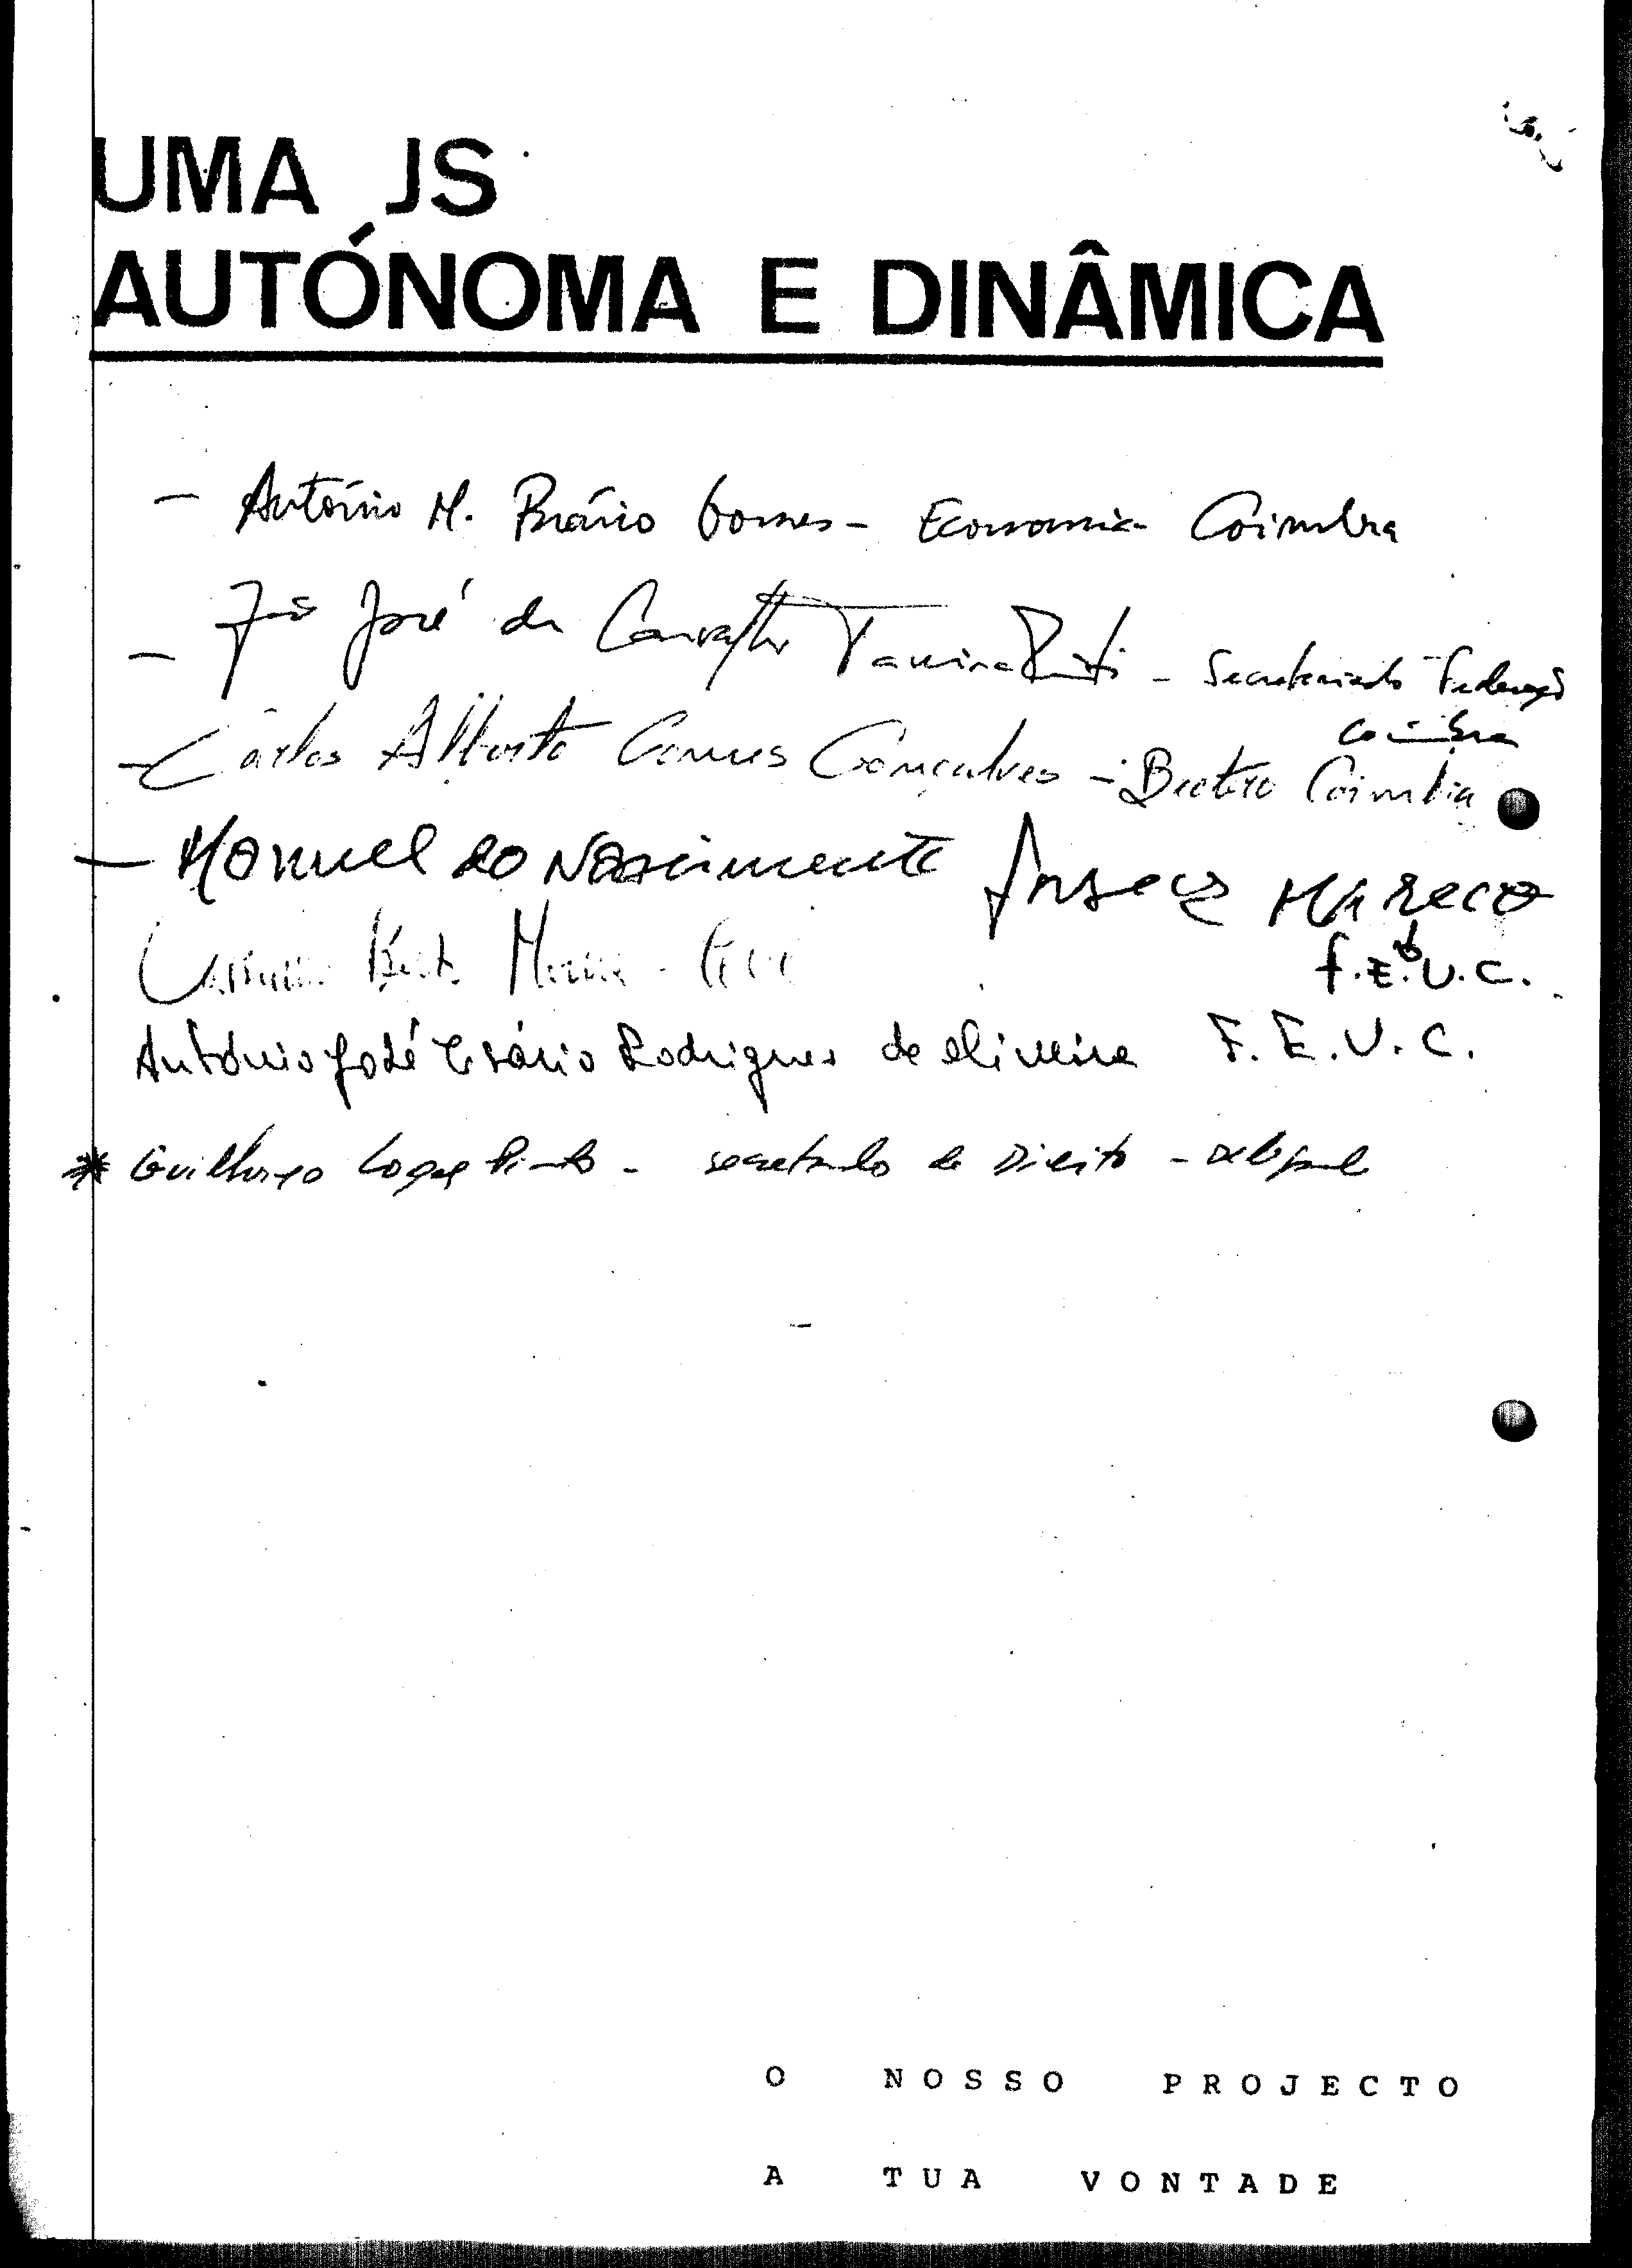 UMA JS
AUTÓNOMA E DINÂMICA
- António M. Brário Gomes - Economia Coimbra
- José de Carvalho - Secretariado Federação
Coimbra
- Carlos Alberto Gomes Gonçalves - Coimbra
- Manuel do Nascimento Fonseca Mareco
F.E.U.C.
António José Cesário Rodrigues de Oliveira F.E.U.C.
* Guilherme Pinto - secretariado de Direito -
O NOSSO PROJECTO
A TUA VONTADE